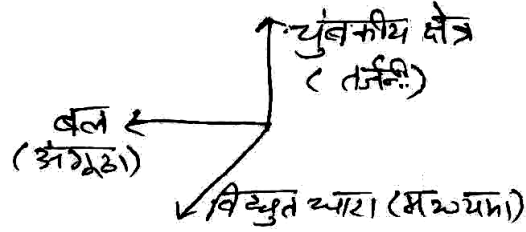 चुंबकीय क्षेत्र
( तर्जनी )
बल
(अंगूठा)
विद्युत धारा (मध्यमा)